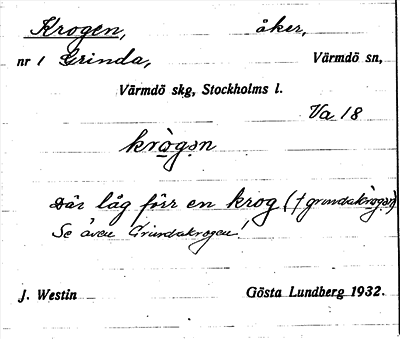 Krogen, åker,
nr 1 Grinda, Värmdö sn,
Värmdö skg, Stockholms l.
Va 18
krògən
Där låg förr en krog († grindakrògən)
Se även Grindakrogen!
J. Westin Gösta Lundberg 1932.